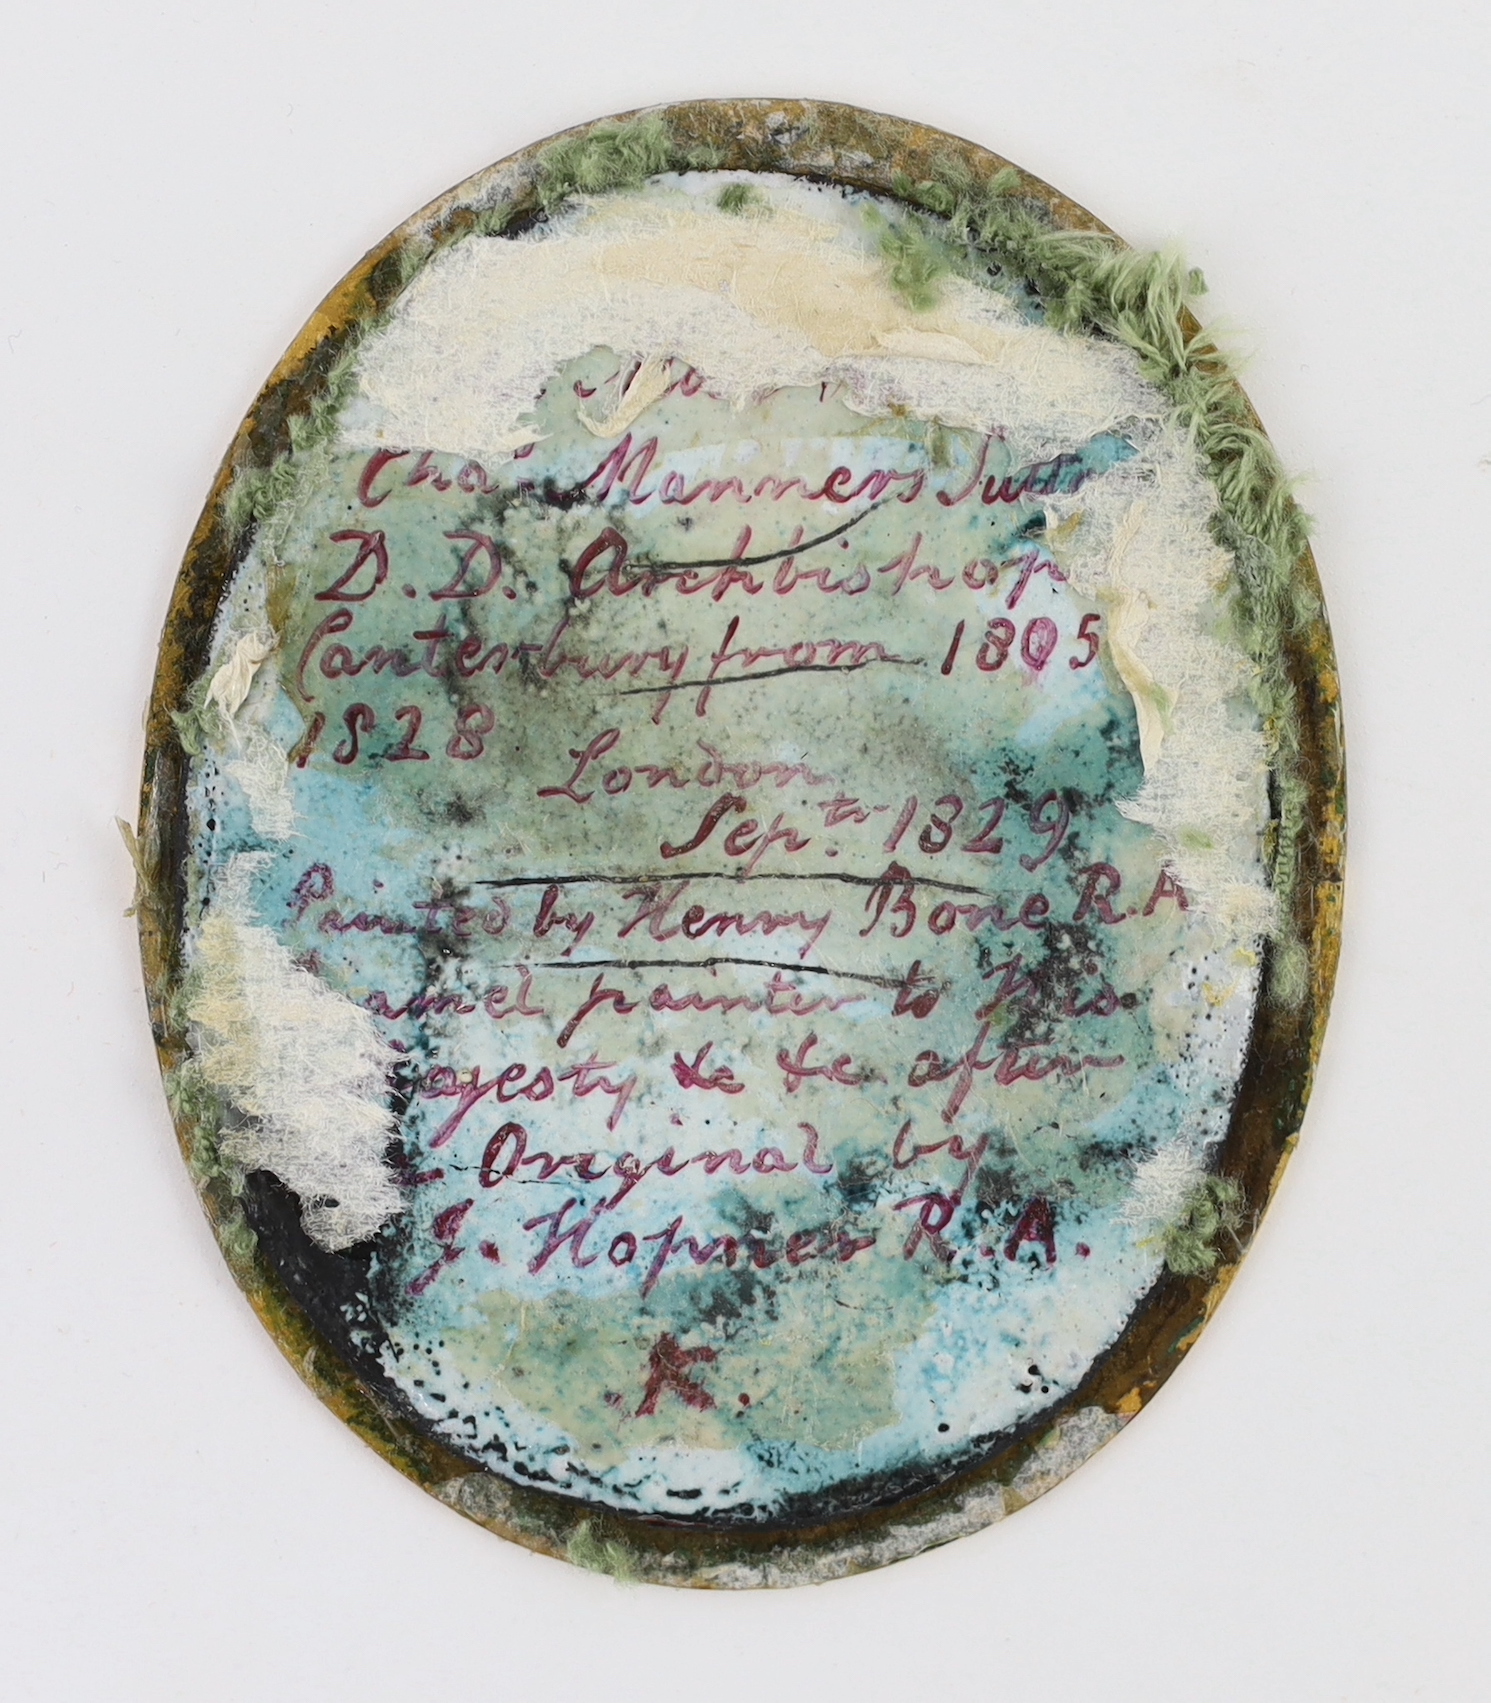 Chas. Manners Sutton
D.D. Archbishop
Canterbury from 1805
1828
London
Sep.tr 1829
Painted by Henry Bone R.A
amel painter to His
ajesty &c &c after
Original by
J. Hopner R.A.
K.